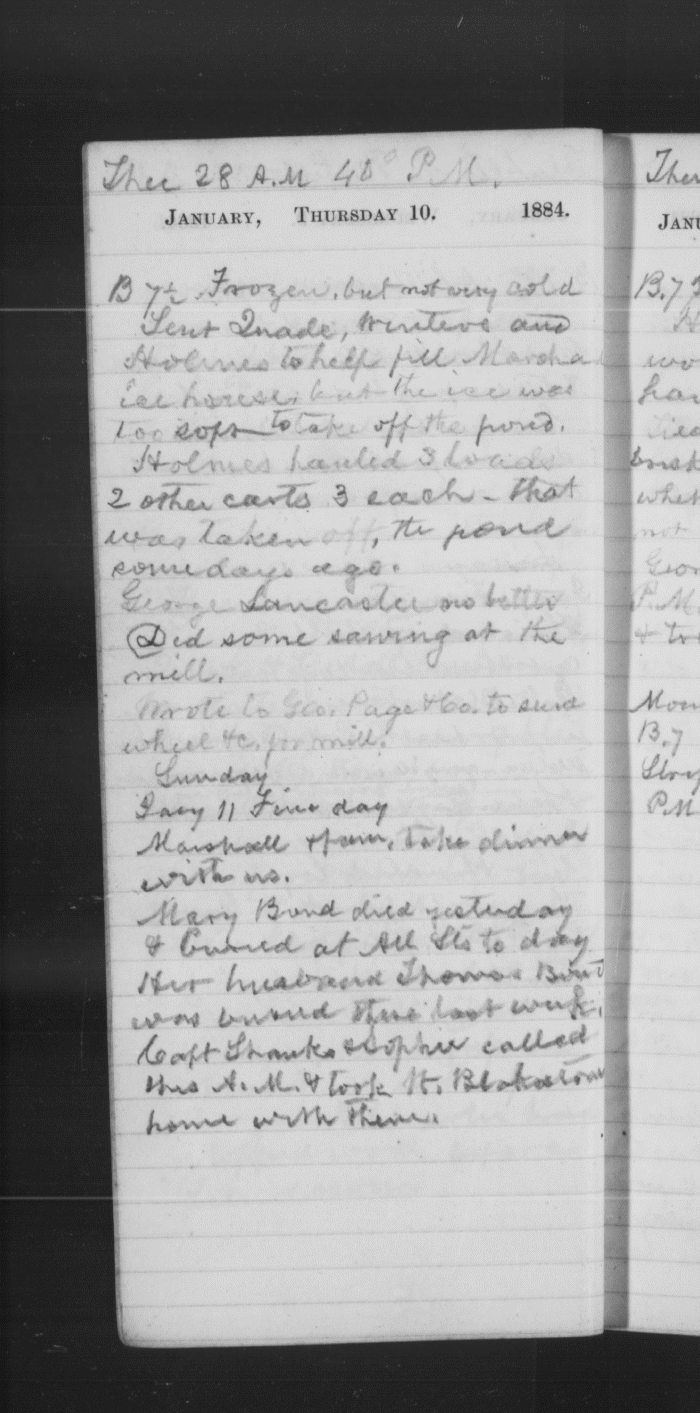 Ther 28 A.M 40° P.M.
January, Thursday 10. 1884.
B 7½ Frozen, but not very cold
Sent Quade, and
Holmes to help fill Marsha
ice house, but the ice was
too soft to take off the pond.
Holmes hauled 3 loads
2 other carts 3 each - that
was taken off, the pond
some days ago.
George Lancaster no better
Did some sawing at the
mill.
Wrote to Geo. Page & Co. to send
wheel &c. for mill.
Sunday
Jany 11 Fine day
Marshall & fam. take dinner
with us.
Mary Bond died yesterday
& buried at All Sts to day
Her husband Thomas Bond
was buried there last week.
Capt Shanks & Sophie called
this A.M. & took Blakistone
home with them.
Ther
Janu
B.7
wo
hau
whet
not
Geor
P.M.
& tr
Mon
B.7
PM